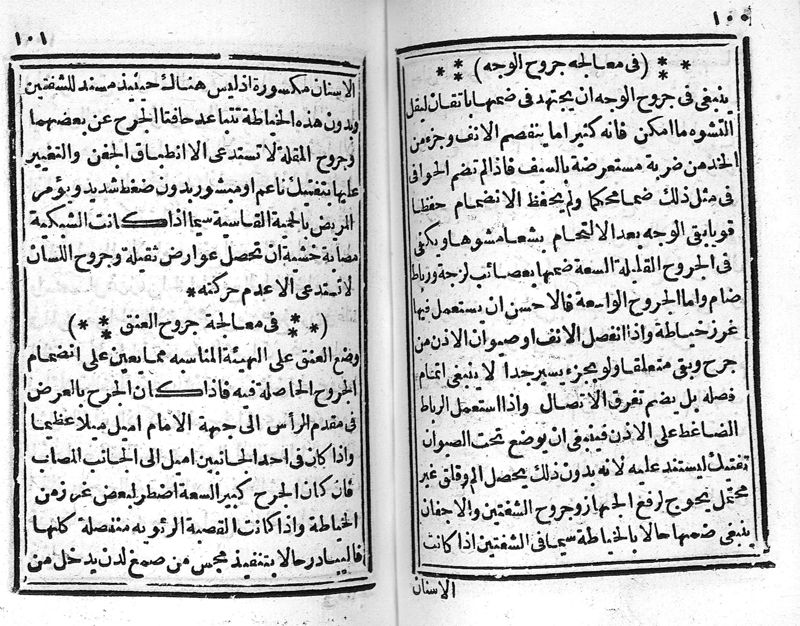 ١٠٠
(فى معالجة جروح الوجه)
ينبغى فى جروح الوجه ان يجتهد فى ضمها باتقان ليقل
التشوه ما امكن فانه كثيرا ما ينفصم الانف وجزء من
الخد من ضربة مستعرضة بالسيف فاذا لم تضم الحوافى
فى مثل ذلك ضما محكما ولم يحفظ الانضمام حفظا
قويا بقى الوجه بعد الالتحام بشعا مشوها ويكفى
فى الجروح القليلة السعة ضمها بعصائب لزجة ورباط
ضام واما الجروح الواسعة فالاحسن ان يستعمل فيها
غرز خياطة واذا انفصل الانف او صيوان الاذن من
جرح وبقى متعلقا ولو بجزء يسير جدا لا ينبغى اتمام
فصله بل يضم تفرق الاتصال واذا استعمل الرباط
الضاغط على الاذن فينبغى ان يوضع تحت الصيوان
تفتيك ليستند عليه لانه بدون ذلك يحصل الم وقلق غير
محتمل يحوج لرفع الجهاز وجروح الشفتين والاجفان
ينبغى ضمها حالا بالخياطة سيما فى الشفتين اذا كانت
الاسنان
١٠١
الاسنان مكسورة اذ ليس هناك حينئذ مسند للشفتين
وبدون هذه الخياطة تتباعد حافتا الجرح عن بعضهما
وجروح المقلة لا تستدعى الا انطباق الجفن والتغيير
عليها بتفتيك ناعم او مبشور بدون ضغط شديد ويؤمر
المريض بالحمية القاسية سيما اذا كانت الشبكية
مصابة خشية ان تحصل عوارض ثقيلة وجروح اللسان
لا تستدعى الا عدم حركته *
(* فى معالجة جروح العنق *)
وضع العنق على الهيئة المناسبه مما يعين على انضمام
الجروح الحاصلة فيه فاذا كان الجرح بالعرض
فى مقدم الرأس الى جهة الامام اميل ميلا عظيما
واذا كان فى احد الجانبين اميل الى الجانب المصاب
فان كان الجرح كبير السعة اضطر لبعض غرز من
الخياطة واذا كانت القصبة الرئويه منفصلة كلها
فاليبادر حالا بتنفيذ مجس من صمغ لدن يدخل من